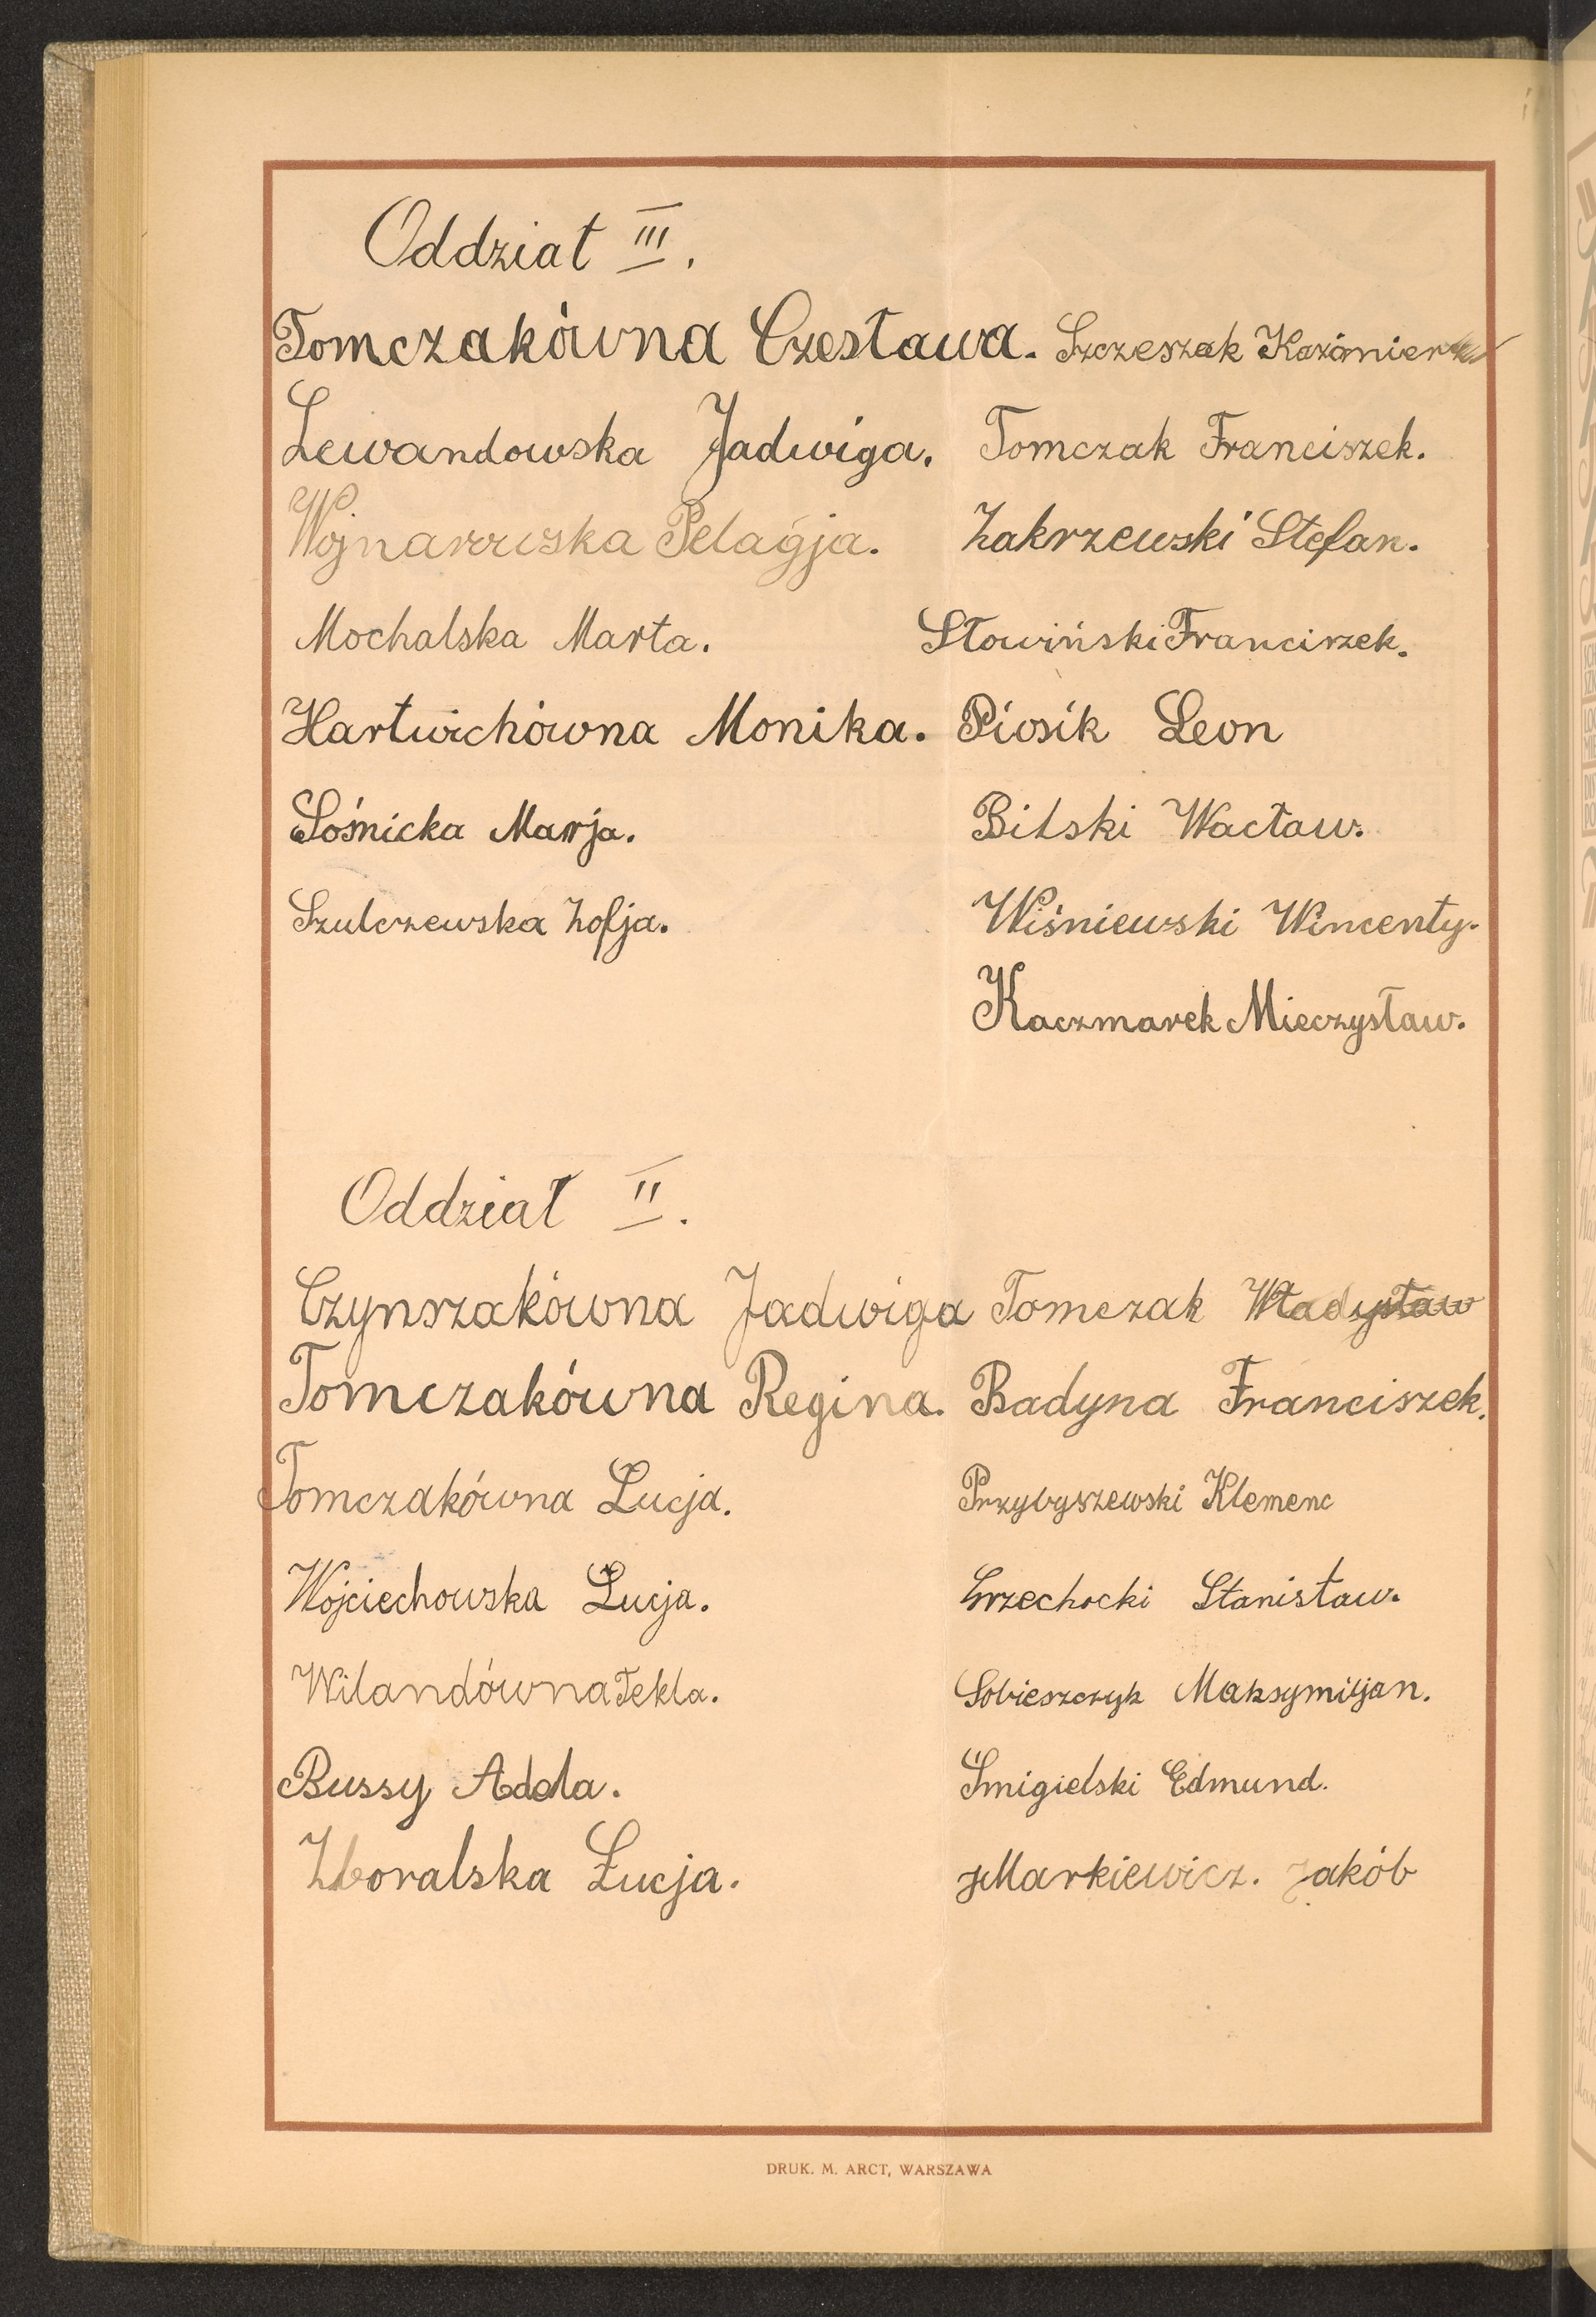 Oddział III.
Tomczakówna Czesława. Szczeszak Kazimierz
Lewandowska Jadwiga. Tomczak Franciszek.
Wojnarowska Pelagja. Zakrzewski Stefan.
Mochalska Marta. Słowiński Franciszek.
Hartwichówna Monika. Piosik Leon
Sośnicka Marja. Bilski Wacław.
Szulczewska Zofja. Wiśniewski Wincenty.
Kaczmarek Mieczysław.
Oddział II.
Czynszakówna Jadwiga Tomczak Władysław
Tomczakówna Regina. Badyna Franciszek.
Tomczakówna Łucja. Przybyszewski Klemenc
Wojciechowska Łucja. Grzechocki Stanisław.
Wilandówna Tekla. Sobieszczyk Maksymiljan.
Bussy Adela. Śmigielski Edmund.
Zboralska Łucja. Markiewicz. Jakób
DRUK. M. ARCT, WARSZAWA